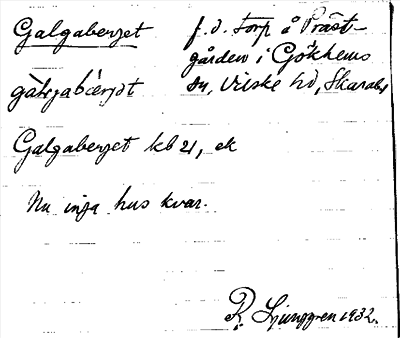 Galgaberget
f. d. torp å Präst-
gården i Gökhems
sn, Vilske hd, Skarabg
Galgaberget kb 21, ek
Nu inga hus kvar.
R. Ljunggren 1932.